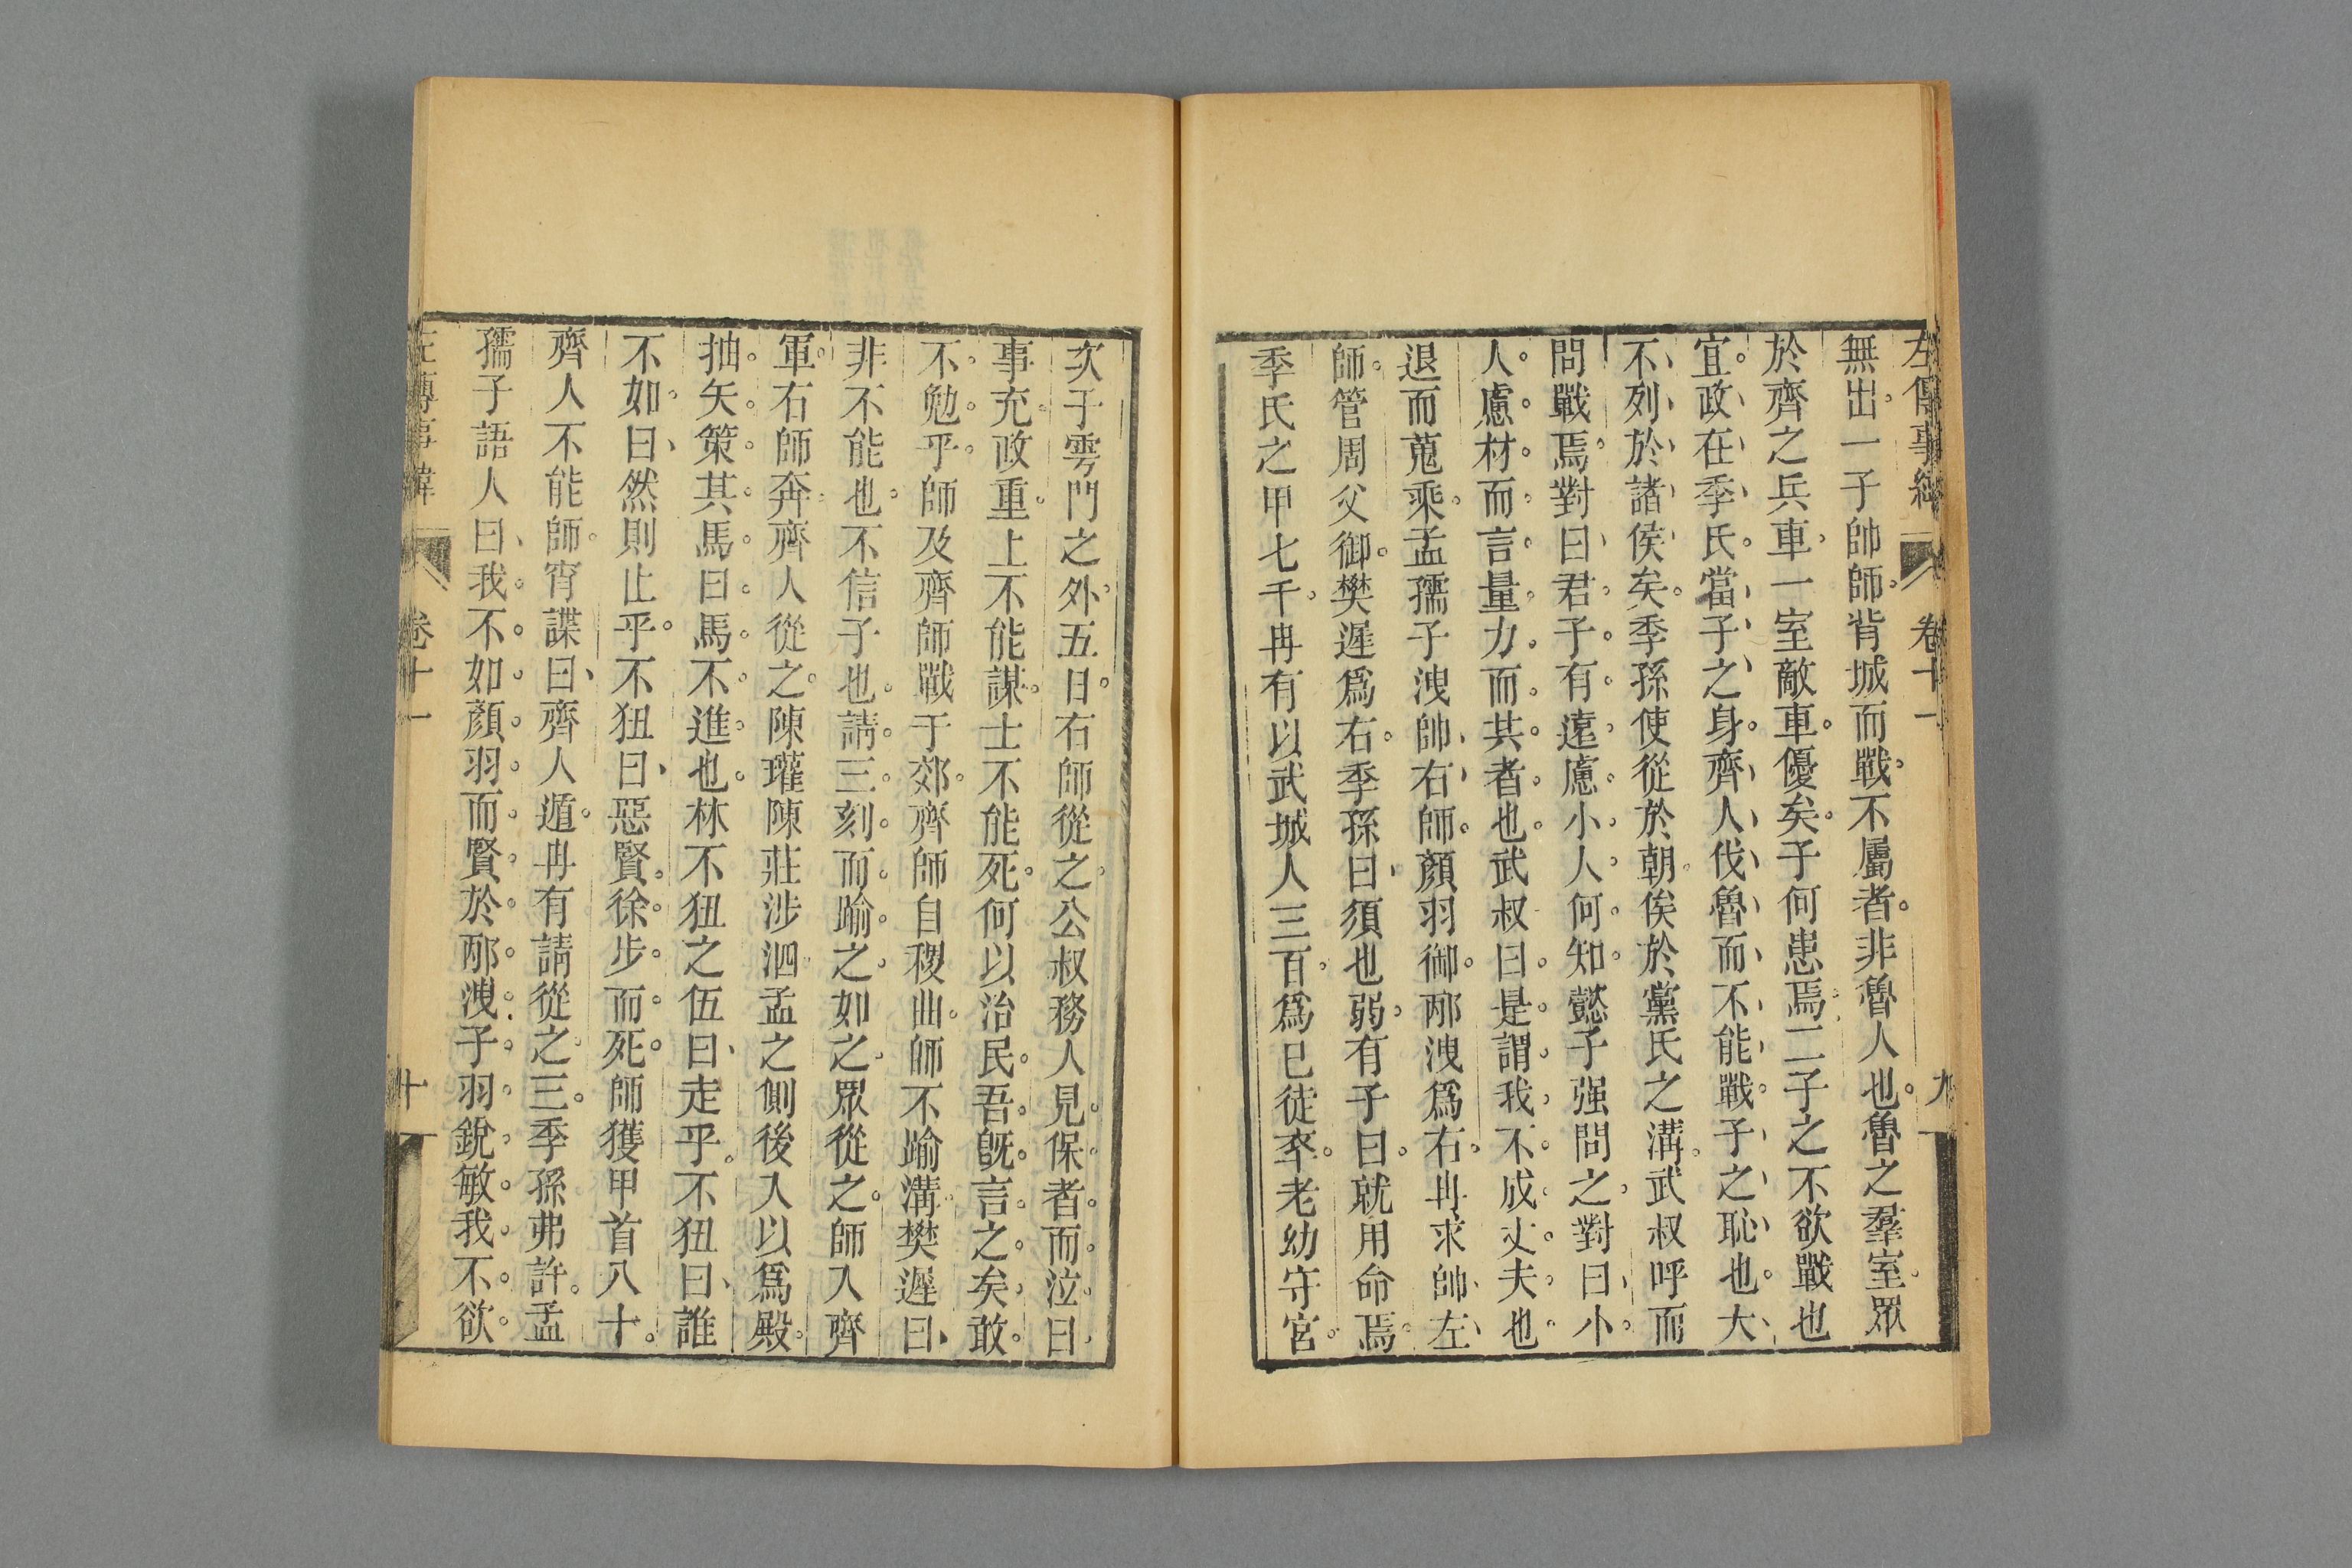 左傳事緯 卷十一 九
無出一子帥師背城而戰不屬者非魯人也魯之羣室眾
於齊之兵車一室敵車優矣子何患焉二子之不欲戰也
宜政在季氏當子之身齊人伐魯而不能戰子之恥也大
不列於諸侯矣季孫使從於朝俟於黨氏之溝武叔呼而
問戰焉對曰君子有遠慮小人何知懿子强問之對曰小
人慮材而言量力而共者也武叔曰是謂我不成丈夫也
退而蒐乘孟孺子洩帥右師顏羽御邴洩爲右冉求帥左
師管周父御樊遲爲右季孫曰須也弱有子曰就用命焉
季氏之甲七千冉有以武城人三百爲己徒卒老幼守宮
次于雩門之外五日右師從之公叔務人見保者而泣曰
事充政重上不能謀士不能死何以治民吾既言之矣敢
不勉乎師及齊師戰于郊齊師自稷曲師不踰溝樊遲曰
非不能也不信子也請三刻而踰之如之眾從之師入齊
軍右師奔齊人從之陳瓘陳莊涉泗孟之側後入以爲殿
抽矢策其馬曰馬不進也林不狃之伍曰走乎不狃曰誰
不如曰然則止乎不狃曰惡賢徐步而死師獲甲首八十
齊人不能師宵諜曰齊人遁冉有請從之三季孫弗許孟
孺子語人曰我不如顏羽而賢於邴洩子羽銳敏我不欲
左傳事緯 卷十一 十